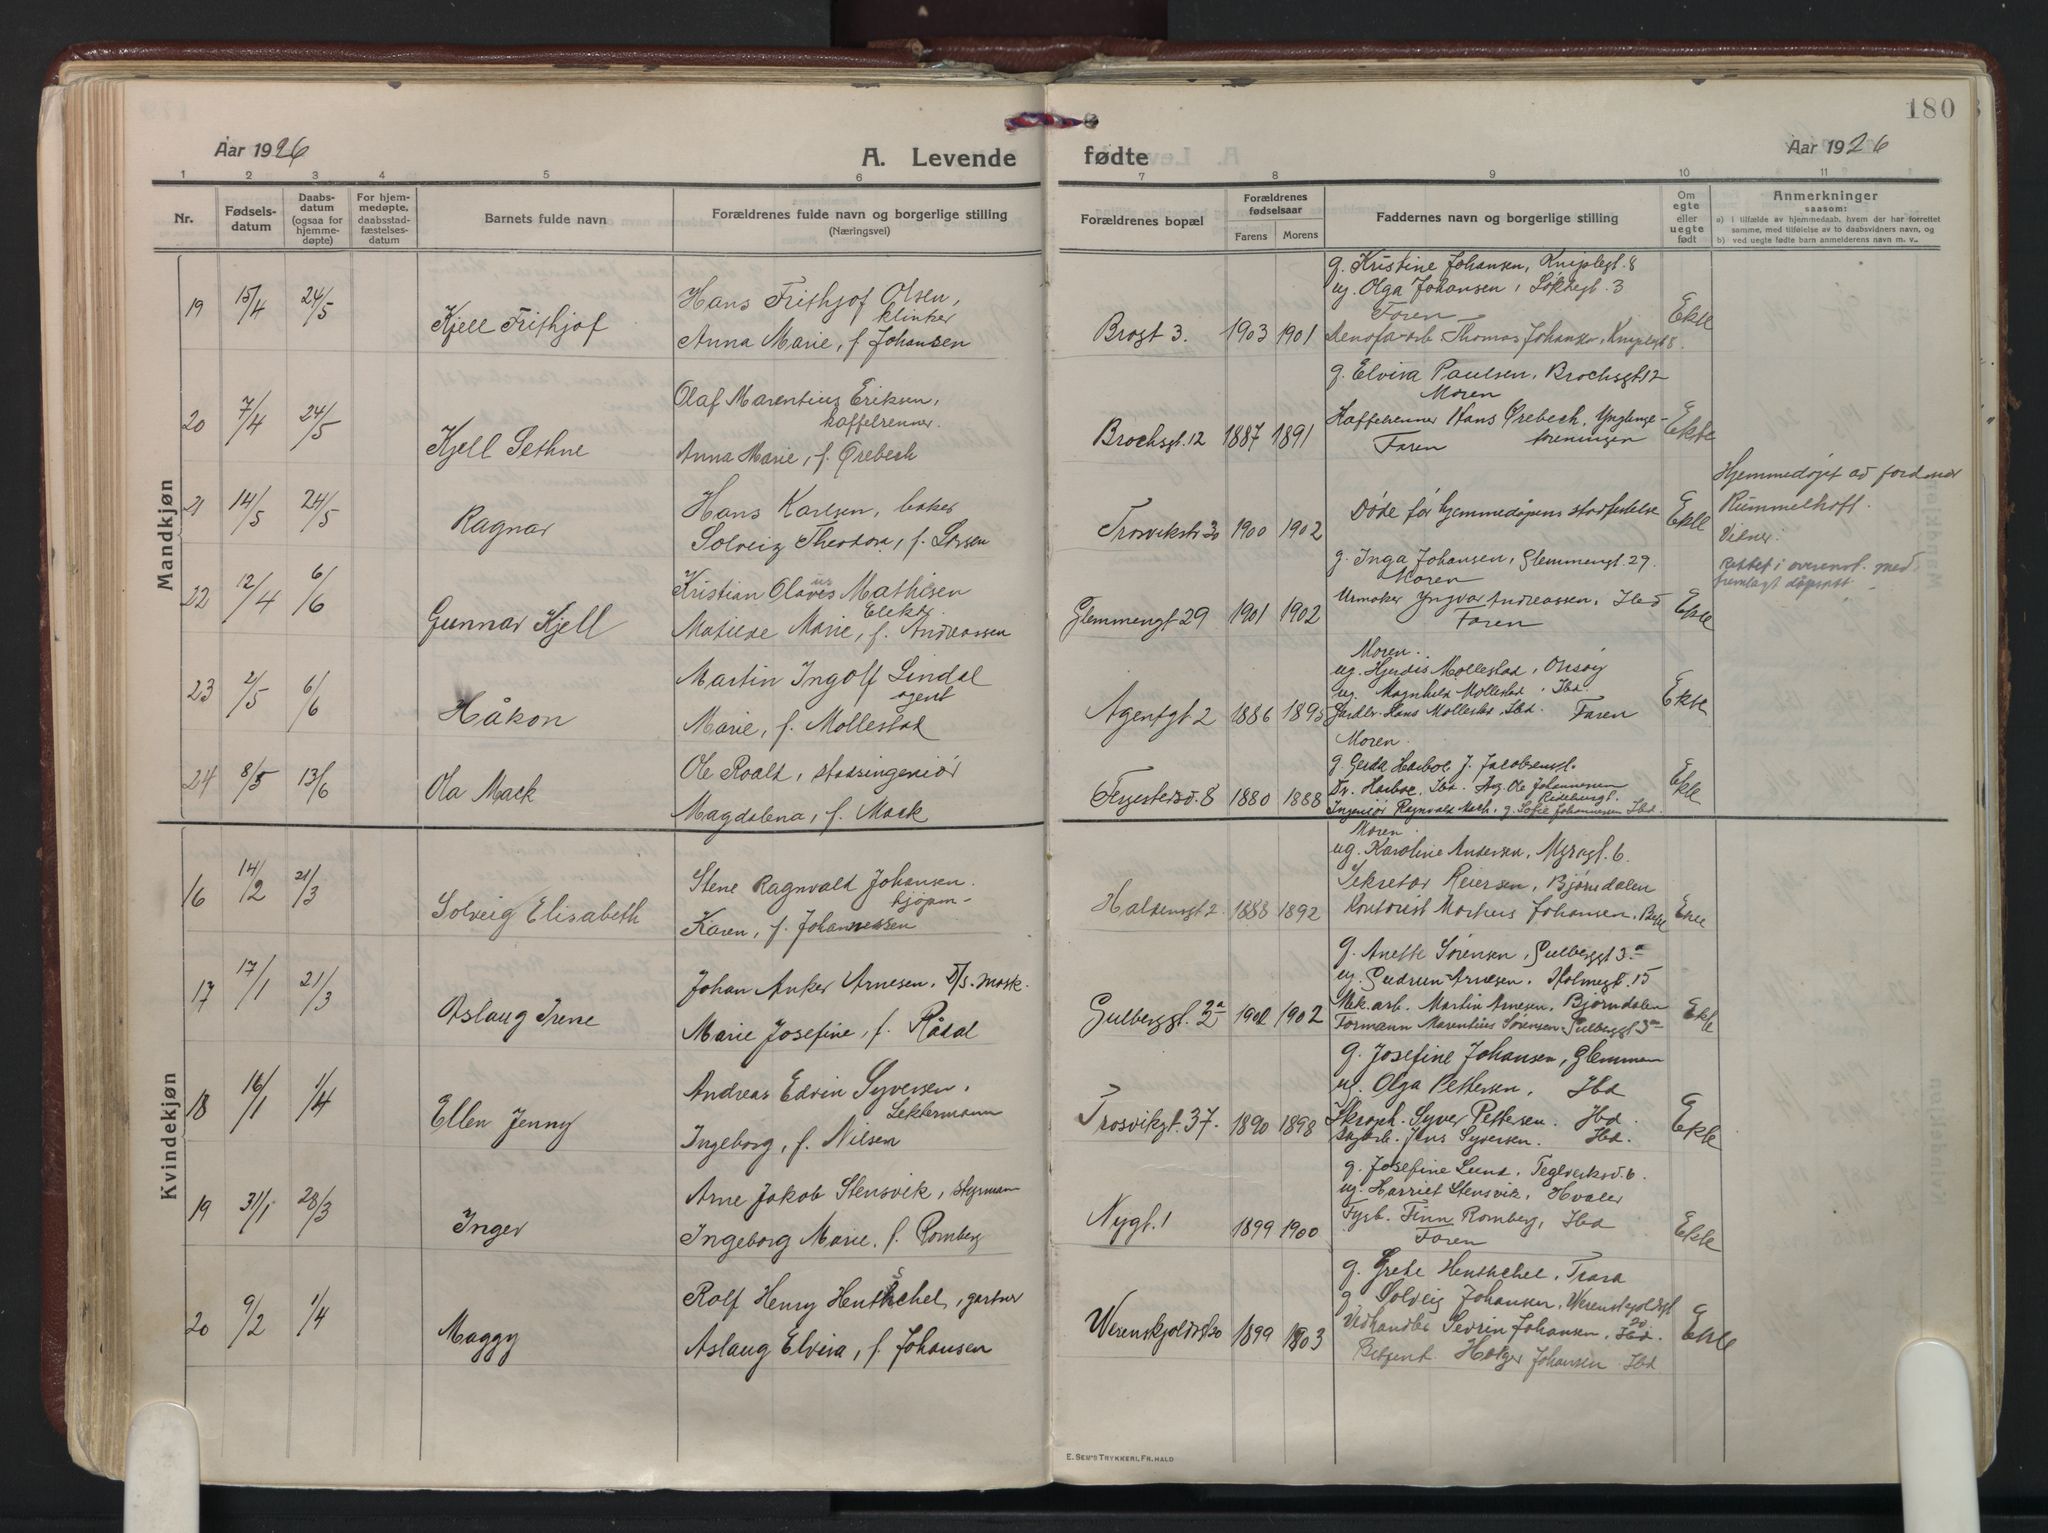 180
Aar 1926
A. Levende fødte
Aar 1926
1 2 3 4 5 6 7 8 9 10 11
Nr.
Fødsels-
datum
Daabs-
datum
(ogsaa for
hjemme-
døpte)
For hjem-
medøpte,
daabsstad-
fæstelses-
datum
Barnets fulde navn
Forældrenes fulde navn og borgerlige stilling
(Næringsvei)
Forældrenes bopæl
Forældrenes
fødselsaar
Farens Morens
Faddernes navn og borgerlige stilling
Om
egte
eller
uegte
født
Anmerkninger
saasom:
a) i tilfælde av hjemmedaab, hvem der har forrettet
samme, med tilføielse av to daabsvidners navn, og
b) ved uegte fødte barn anmelderens navn m. v.
Mandkjøn
19 15/4 24/5 Kjell Frithjof
Hans Frithjof Olsen,
klinker
Anna Marie, f. Johansen
Brogt 3. 1903 1901
g. Kristine Johansen, Kniplegt. 8
ug. Olga Johansen, 3
Faren
Thomas Johansen, Kniplegt 8.
Ekte
20 7/4 24/5 Kjell Sethne
Olaf Marentius Eriksen,
kaffebrenner.
Anna Marie, f. Ørebech
Brochsgt. 12 1887 1891
g. Elvira Paulsen, Brochsgt 12
Moren
Kaffebrenner Hans Ørebech, Ynglinge-
foreningen
Faren
Ekte
21 14/5 24/5 Ragnar
Hans Karlsen, baker
Solveig Theodora, f. Larsen
Trosvikstr 30 1900 1902
Døde før hjemmedåpens stadfestelse
Ekte
Hjemmedøpt av jordmor
Rummelhoff.
22 12/4 6/6 Gunnar Kjell
Kristian Olaves us Mathisen
Elektr.
Matilde Marie, f. Andreassen
Glemmengt 29 1901 1902
g. Inga Johansen, Glemmengt. 29.
Moren
Urmaker Yngvar Andreassen, Ibd
Faren
Ekte
rettet i overenst. med
fremlagt dåpsatt.
23 2/5 6/6 Håkon
Martin Ingolf Lindal
agent
Marie, f. Mollestad
Agentgt 2 1886 1895
Moren.
ug. Hjerdis Mollestad, Onsøy
ug. Magnhild Mollestad, Ibd.
Hans Mollestad, Ibd. Faren
Ekte
24 8/5 13/6 Ola Mack
Ole Roald, stadsingeniør
Magdalena, f. Mack
Ferjestedsv. 8 1880 1888
Moren.
g. Gerda Harboe, J. Jacobsensgt.
Dr. Harboe, Ibd. Ole Johannesen
Ridebergt.
Ingeniør Ragnvald Mack, g. Sofie Johannesen Ibd.
Ekte
Kvindekjøn
16 14/2 21/3 Solveig Elisabeth
Stene Ragnvald Johansen.
kjøpm-
Karen, f. Johannessen
Haldengt 2. 1888 1892
Moren.
ug. Karoline Andersen, Myragt. 6.
Sekretær Reiersen, Bjørndalen
Kontorist Markus Johansen,
Ekte
17 17/1 21/3 Aslaug Irene
Johan Anker Arnesen, D/s. mask.
Marie Josefine, f. Rådal
Gulberggt. 3a 1902
g. Anette Sørensen, Gulberggt 3a
ug. Gudrun Arnesen, Holmegt 15
Mek. arb. Martin Arnesen, Bjørndalen
Formann Marentius Sørensen, Gulberggt 3a
Ekte
18 16/1 1/4 Ellen Jenny
Andreas Edvin Syversen,
Lektermann
Ingeborg, f. Nilsen
Trosvikgt. 37. 1890 1898
g. Josefine Johansen, Glemmen
ug. Olga Pettersen, Ibd
Skraph. Syver Pettersen. Ibd.
Sagarb. Jens Syversen. Ibd.
Ekte
19 31/1 28/3 Inger
Arne Jakob Stensvik, styrman
Ingeborg Marie, f. Romberg
Nygt. 1 1899 1900
g. Josefine Lund, Teglverksv. 6.
ug. Harriet Stensvik, Hvaler
Fyrb. Finn Romberg, Ibd
Faren
Ekte
20 9/2 1/4 Maggy
Rolf Henry Hentschel, gartner
Aslaug Elvira, f. Johansen
Werenskjoldsgt 20 1899 1903
g. Grete Henthchel, Trara
g. Solveig Johansen, Werenskjoldsgt
20
Vedhandler Sevrin Johansen, Ibd.
Betjent. Holger Johansen Ibd
Ekte
E. SEM'S TRYKKERI, FR.HALD